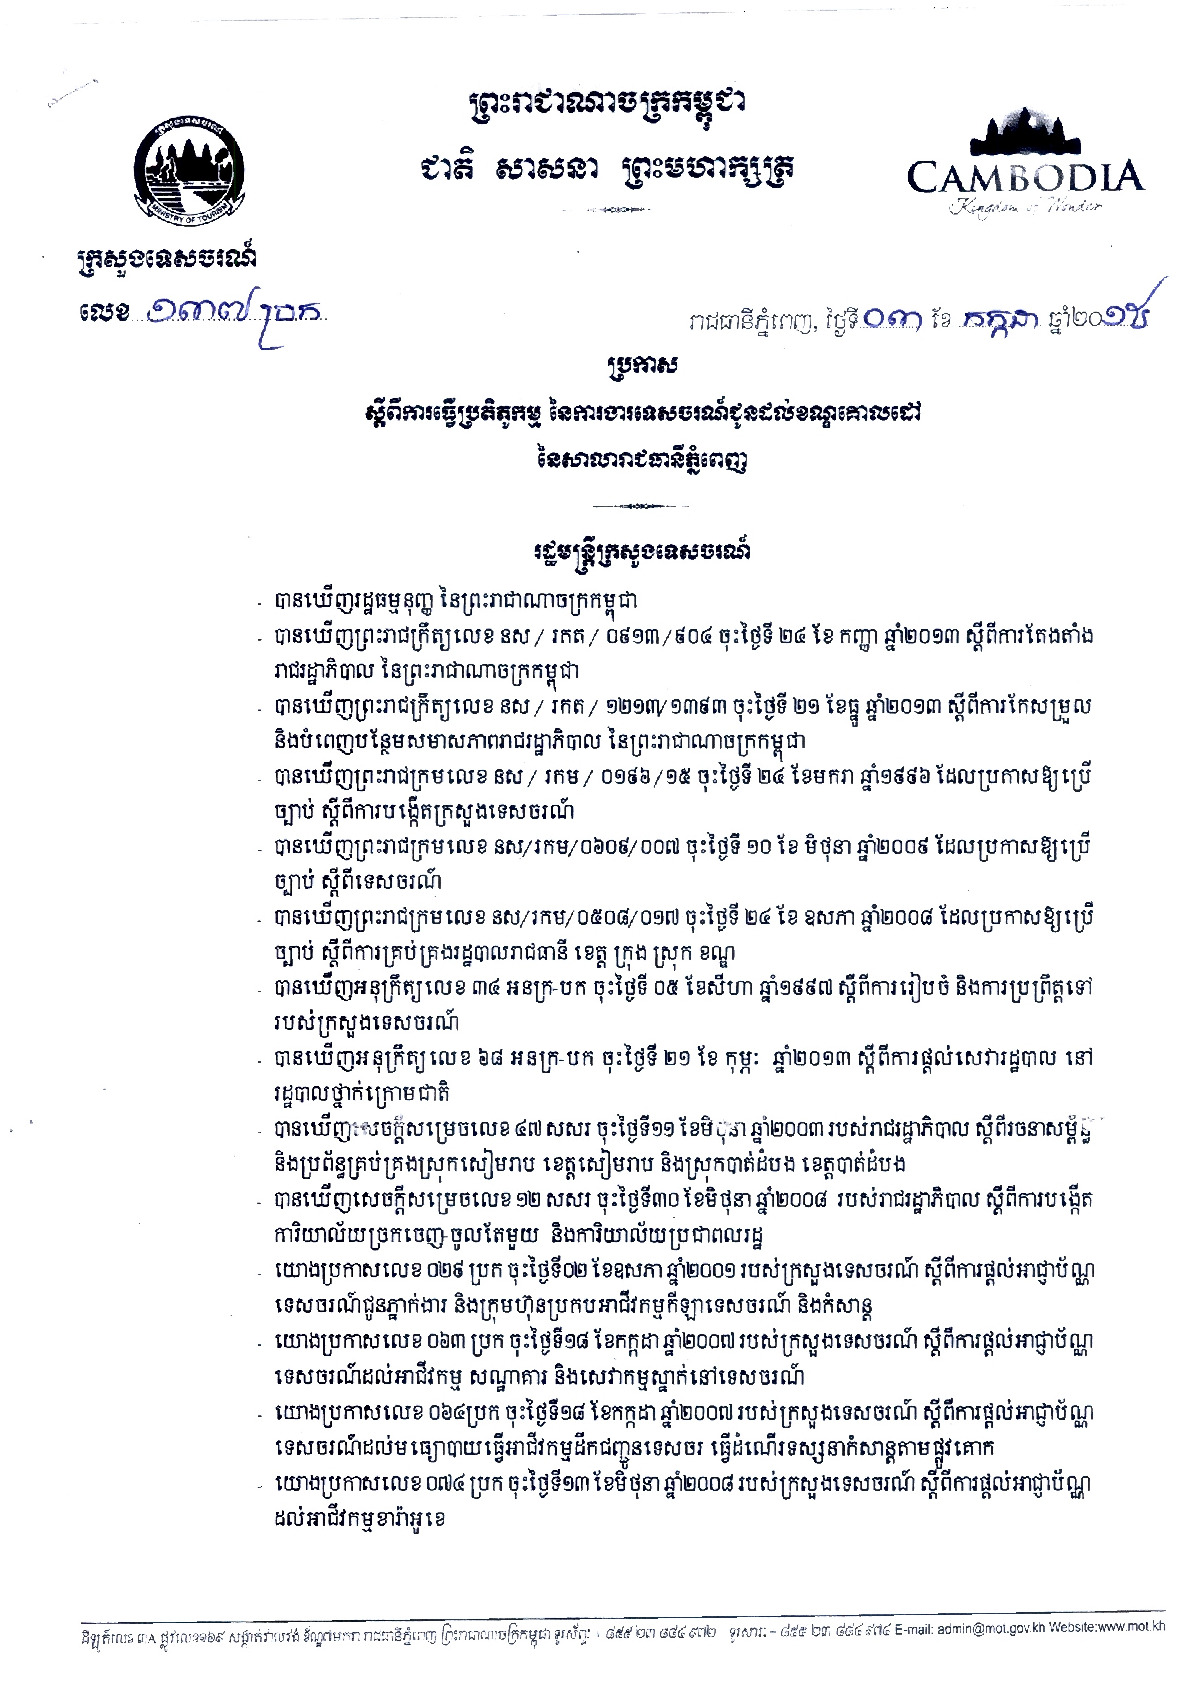 ព្រះរាជាណាចក្រកម្ពុជា
ជាតិ សាសនា ព្រះមហាក្សត្រ
MINISTRY OF TOURISM
CAMBODIA
Kingdom of Wonder
ក្រសួងទេសចរណ៍
លេខ ១៣៧ ប្រក
រាជធានីភ្នំពេញ, ថ្ងៃទី ០៣ ខែ កក្កដា ឆ្នាំ២០១៥
ប្រកាស
ស្តីពីការធ្វើប្រតិភូកម្ម នៃការងារទេសចរណ៍ជូនដល់ខណ្ឌគោលដៅ
នៃសាលារាជធានីភ្នំពេញ
រដ្ឋមន្ត្រីក្រសួងទេសចរណ៍
- បានឃើញរដ្ឋធម្មនុញ្ញ នៃព្រះរាជាណាចក្រកម្ពុជា
- បានឃើញព្រះរាជក្រឹត្យលេខ នស/ រកត/ ០៩១៣/៩០៤ ចុះថ្ងៃទី ២៤ ខែ កញ្ញា ឆ្នាំ២០១៣ ស្តីពីការតែងតាំង
រាជរដ្ឋាភិបាល នៃព្រះរាជាណាចក្រកម្ពុជា
- បានឃើញព្រះរាជក្រឹត្យលេខ នស/ រកត/ ១២១៣/១៣៩៣ ចុះថ្ងៃទី ២១ ខែធ្នូ ឆ្នាំ២០១៣ ស្តីពីការកែសម្រួល
និងបំពេញបន្ថែមសមាសភាពរាជរដ្ឋាភិបាល នៃព្រះរាជាណាចក្រកម្ពុជា
- បានឃើញព្រះរាជក្រមលេខ នស/ រកម/ ០១៩៦/១៥ ចុះថ្ងៃទី ២៤ ខែមករា ឆ្នាំ១៩៩៦ ដែលប្រកាសឱ្យប្រើ
ច្បាប់ ស្តីពីការបង្កើតក្រសួងទេសចរណ៍
- បានឃើញព្រះរាជក្រមលេខ នស/រកម/០៦០៩/០០៧ ចុះថ្ងៃទី ១០ ខែ មិថុនា ឆ្នាំ២០០៩ ដែលប្រកាសឱ្យប្រើ
ច្បាប់ ស្តីពីទេសចរណ៍
- បានឃើញព្រះរាជក្រមលេខ នស/រកម/០៥០៨/០១៧ ចុះថ្ងៃទី ២៤ ខែ ឧសភា ឆ្នាំ២០០៨ ដែលប្រកាសឱ្យប្រើ
ច្បាប់ ស្តីពីការគ្រប់គ្រងរដ្ឋបាលរាជធានី ខេត្ត ក្រុង ស្រុក ខណ្ឌ
- បានឃើញអនុក្រឹត្យលេខ ៣៤ អនក្រ-បក ចុះថ្ងៃទី ០៥ ខែសីហា ឆ្នាំ១៩៩៧ ស្តីពីការរៀបចំ និងការប្រព្រឹត្តទៅ
របស់ក្រសួងទេសចរណ៍
- បានឃើញអនុក្រឹត្យលេខ ៦៨ អនក្រ-បក ចុះថ្ងៃទី ២១ ខែ កុម្ភៈ ឆ្នាំ២០១៣ ស្តីពីការផ្តល់សេវារដ្ឋបាល នៅ
រដ្ឋបាលថ្នាក់ក្រោមជាតិ
- បានឃើញសេចក្តីសម្រេចលេខ ៤៧ សសរ ចុះថ្ងៃទី១១ ខែមិថុនា ឆ្នាំ២០០៣ របស់រាជរដ្ឋាភិបាល ស្តីពីរចនាសម្ព័ន្ធ
និងប្រព័ន្ធគ្រប់គ្រងស្រុកសៀមរាប ខេត្តសៀមរាប និងស្រុកបាត់ដំបង ខេត្តបាត់ដំបង
- បានឃើញសេចក្តីសម្រេចលេខ ១២ សសរ ចុះថ្ងៃទី៣០ ខែមិថុនា ឆ្នាំ២០០៨ របស់រាជរដ្ឋាភិបាល ស្តីពីការបង្កើត
ការិយាល័យច្រកចេញ-ចូលតែមួយ និងការិយាល័យប្រជាពលរដ្ឋ
- យោងប្រកាសលេខ ០២៩ ប្រក ចុះថ្ងៃទី០២ ខែឧសភា ឆ្នាំ២០០១ របស់ក្រសួងទេសចរណ៍ ស្តីពីការផ្តល់អាជ្ញាប័ណ្ណ
ទេសចរណ៍ជូនភ្នាក់ងារ និងក្រុមហ៊ុនប្រកបអាជីវកម្មកីឡាទេសចរណ៍ និងកំសាន្ត
- យោងប្រកាសលេខ ០៦៣ ប្រក ចុះថ្ងៃទី១៨ ខែកក្កដា ឆ្នាំ២០០៧ របស់ក្រសួងទេសចរណ៍ ស្តីពីការផ្តល់អាជ្ញាប័ណ្ណ
ទេសចរណ៍ដល់អាជីវកម្ម សណ្ឋាគារ និងសេវាកម្មស្នាក់នៅទេសចរណ៍
- យោងប្រកាសលេខ ០៦៤ប្រក ចុះថ្ងៃទី១៨ ខែកក្កដា ឆ្នាំ២០០៧ របស់ក្រសួងទេសចរណ៍ ស្តីពីការផ្តល់អាជ្ញាប័ណ្ណ
ទេសចរណ៍ដល់មធ្យោបាយធ្វើអាជីវកម្មដឹកជញ្ជូនទេសចរ ធ្វើដំណើរទស្សនាកំសាន្តតាមផ្លូវគោក
- យោងប្រកាសលេខ ០៧៤ ប្រក ចុះថ្ងៃទី១៣ ខែមិថុនា ឆ្នាំ២០០៨ របស់ក្រសួងទេសចរណ៍ ស្តីពីការផ្តល់អាជ្ញាប័ណ្ណ
ដល់អាជីវកម្មខារ៉ាអូខេ
ផ្លូវលេខ១៦៩ សង្កាត់វាលវង់ ខ័ណ្ឌ៧មករា រាជធានីភ្នំពេញ ព្រះរាជាណាចក្រកម្ពុជា ទូរស័ព្ទ: ៨៥៥ ២៣ ៨៨៤ ៩៧២ ទូរសារ: - ៨៥៥ ២៣ ៨៨៤ ៩៧៤ E-mail: admin@mot.gov.kh Website:www.mot.kh